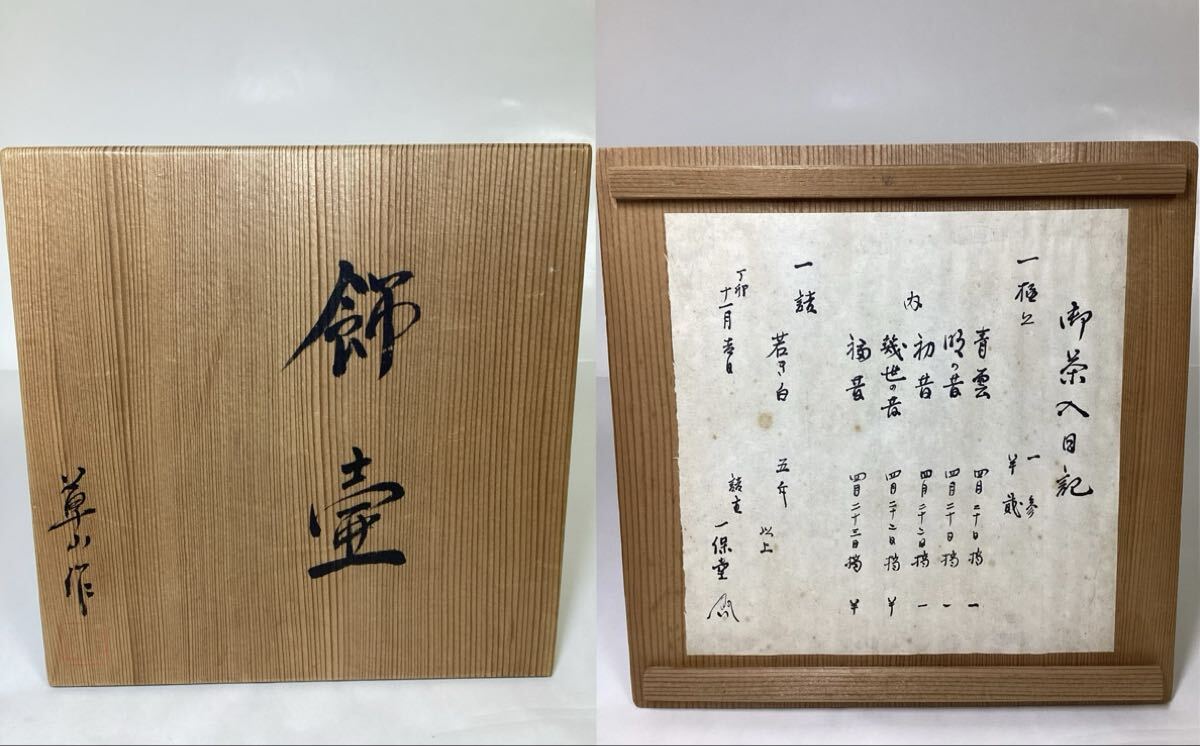 飾壷
草山作
御茶入日記
一極上 一 参
半 貳
内
青雲 四月二十日摘 一
明の昔 四月二十日摘 一
初昔 四月二十二日摘 一
幾世の昔 四月二十二日摘 半
福昔 四月二十三日摘 半
一詰 若き白 五斤 以上
丁卯
十一月吉日
詰主 一保堂